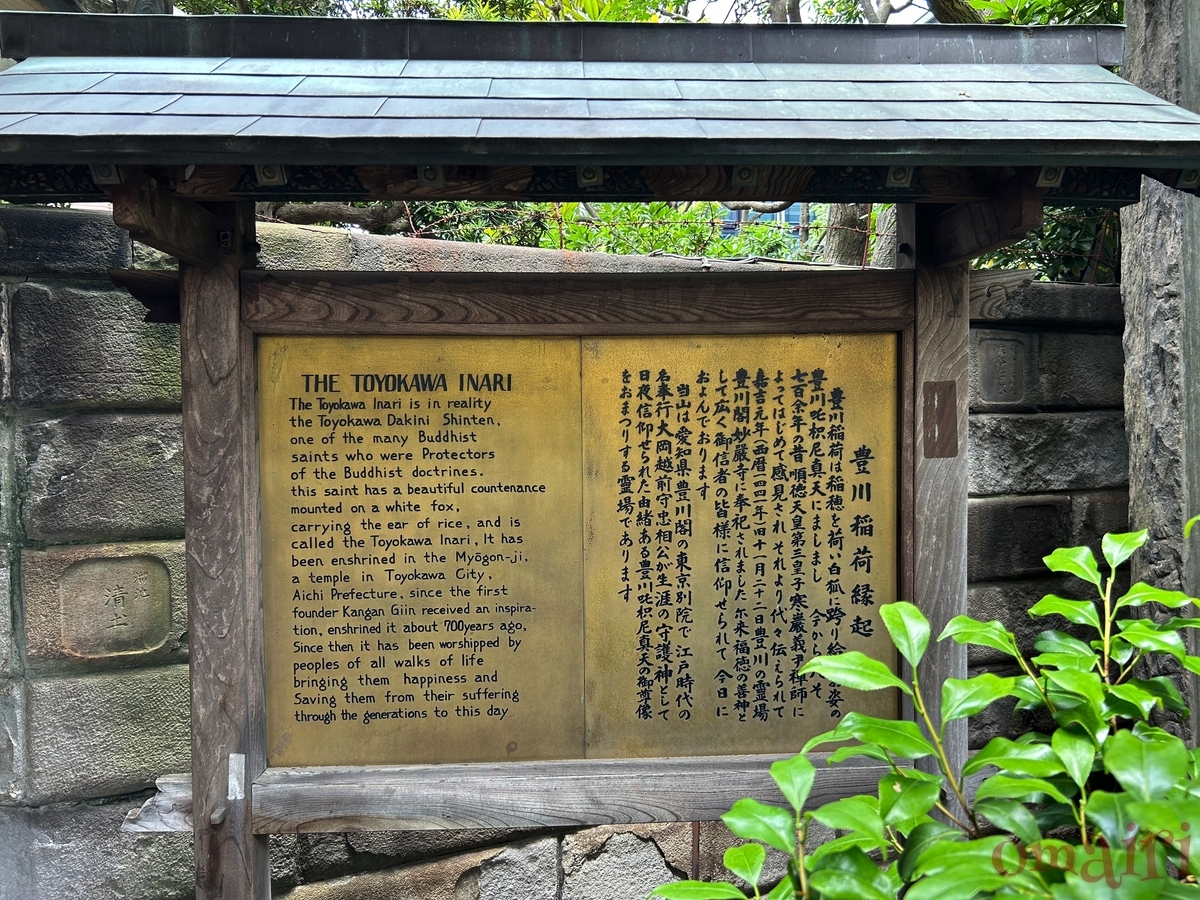 THE TOYOKAWA INARI
The Toyokawa Inari is in reality
the Toyokawa Dakini Shinten,
one of the many Buddhist
saints who were Protectors
of the Buddhist doctrines.
this saint has a beautiful countenance
mounted on a white fox,
carrying the ear of rice, and is
called the Toyokawa Inari, It has
been enshrined in the Myōgon-ji,
a temple in Toyokawa City,
Aichi Prefecture, since the first
founder Kangan Giin received an inspira-
tion, enshrined it about 700years ago,
Since then it has been worshipped by
peoples of all walks of life
bringing them happiness and
Saving them from their suffering
through the generations to this day
豊川稲荷縁起
豊川稲荷は稲穂を荷い白狐に跨り給う お姿の
豊川吒枳尼真天にましまし 今から 八 そ
七百余年の昔 順徳天皇第三皇子 寒巌義尹禅師に
よってはじめて感見され それより代々伝えられて
嘉吉元年(西暦一四四一年)旧十一月二十二日豊川の霊場
豊川閣妙厳寺に奉祀されました 尓来福徳の善神と
して広く御信者の皆様に信仰せられて 今日に
およんでおります
当山は愛知県豊川閣の東京別院で 江戸時代の
名奉行大岡越前守忠相公が生涯の守護神として
日夜信仰せられた由緒ある豊川吒枳尼真天の御尊像
をおまつりする霊場であります
清土
omairi